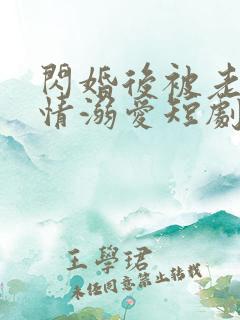 閃婚後被老
情溺愛短劇
王學珺
未经同意禁止转载